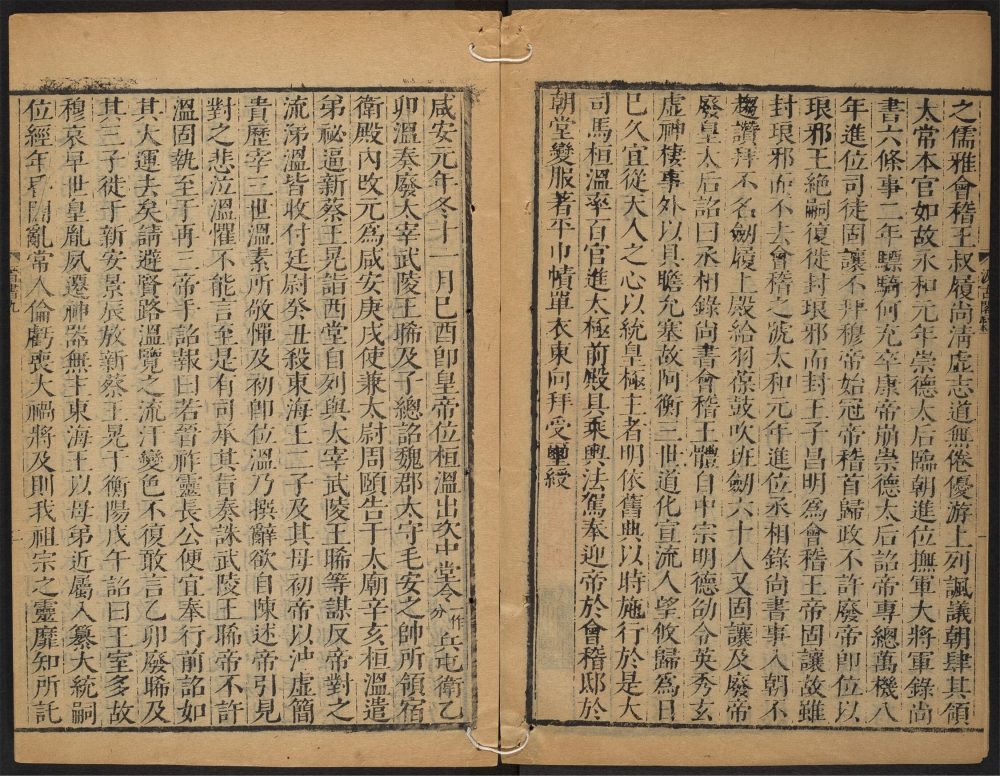 之儒雅會稽王叔履尚清虛志道無倦優游上列諷議朝肆其領
太常本官如故永和元年崇德太后臨朝進位撫軍大將軍錄尚
書六條事二年驃騎何充卒康帝崩崇德太后詔帝專總萬機八
年進位司徒固讓不拜穆帝始冠帝稽首歸政不許廢帝即位以
琅邪王絶嗣復徙封琅邪而封王子昌明爲會稽王帝固讓故雖
封琅邪而不去會稽之號太和元年進位丞相錄尚書事入朝不
趨讚拜不名劒履上殿給羽葆鼓吹班劒六十人又固讓及廢帝
廢皇太后詔曰丞相錄尚書會稽王體自中宗明德劭令英秀玄
虛神棲事外以具瞻允塞故阿衡三世道化宣流人望攸歸爲日
已久宜從天人之心以統皇極主者明依舊典以時施行於是大
司馬桓溫率百官進太極前殿具乘輿法駕奉迎帝於會稽邸於
朝堂變服著平巾幘單衣東向拜受璽綬
咸安元年冬十一月己酉即皇帝位桓溫出次中堂令一作分兵屯衛乙
卯溫奏廢太宰武陵王晞及子總詔魏郡太守毛安之帥所領宿
衛殿內改元爲咸安庚戌使兼太尉周頤告于太廟辛亥桓溫遣
弟祕逼新蔡王晃詣西堂自列與太宰武陵王晞等謀反帝對之
流涕溫皆收付廷尉癸丑殺東海王二子及其母初帝以沖虛簡
貴歷宰三世溫素所敬憚及初即位溫乃撰辭欲自陳述帝引見
對之悲泣溫懼不能言至是有司承其旨奏誅武陵王晞帝不許
溫固執至于再三帝手詔報曰若晉祚靈長公便宜奉行前詔如
其大運去矣請避賢路溫覽之流汗變色不復敢言乙卯廢晞及
其三子徙于新安景辰放新蔡王晃于衡陽戊午詔曰王室多故
穆哀早世皇胤夙遷神器無主東海王以母弟近屬入纂大統嗣
位經年昏闇亂常人倫虧喪大禍將及則我祖宗之靈靡知所託